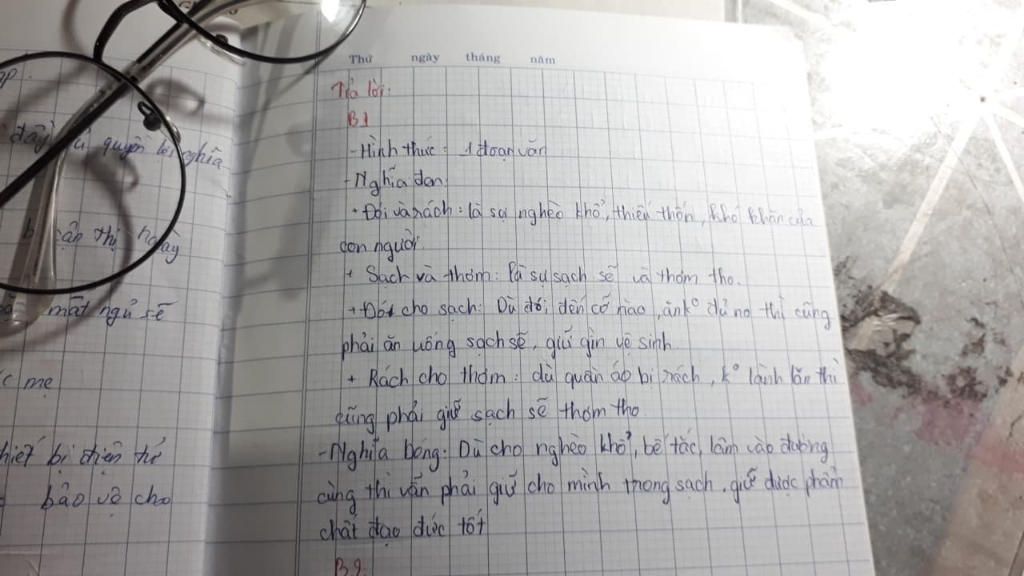 Thứ ngày tháng năm
Trả lời:
B1
- Hình thức: 1 đoạn văn
- Nghĩa đen
+ Đói và rách: là sự nghèo khổ, thiếu thốn, khó khăn của
con người.
+ Sạch và thơm: là sự sạch sẽ và thơm tho.
+ Đói cho sạch: Dù đói đến cỡ nào, ăn k° đủ no thì cũng
phải ăn uống sạch sẽ, giữ gìn vệ sinh
+ Rách cho thơm: dù quần áo bị rách, k° lành lặn thì
cũng phải giữ sạch sẽ thơm tho
- Nghĩa bóng: Dù cho nghèo khổ, bế tắc, lâm vào đường
cùng thì vẫn phải giữ cho mình trong sạch, giữ được phẩm
chất đạo đức tốt
B2
quyền lợi nghĩa
cận thị hoay
mất ngủ sẽ
mẹ
bị điện tử
bảo vệ cho